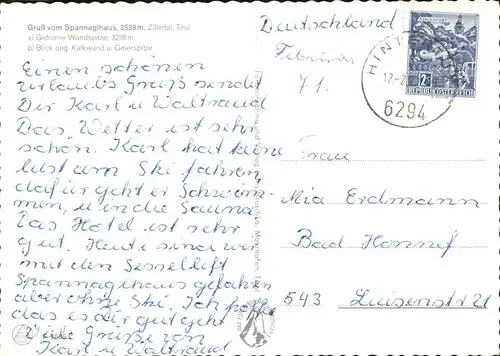 Gruß vom Spannaglhaus, 2528 m, Zillertal, Tirol
a) Gefrorne Wandspitze, 3286 m
b) Blick geg. Kalkwand u. Geierspitze
Einen schönen
Urlaubs Gruß sendet
Dir Karl u Waltraud
Das, Wetter ist sehr
schön. Karl hat keine
lust am Ski fahren,
dafür geht er Schwim-
men, u in die Sauna
Das Hotel ist sehr
gut. Heute sind wir
mit dem Sessellift
Spannaglhaus gefahren
aber ohne Ski. Ich hoffe
das es dir gut geht
Viele Grüße von
Karl u Waltraud
Deutschland
Februar
71.
REPUBLIK ÖSTERREICH
HINT
12.-2
6294
Frau
Mia Erdmann
Bad Honnef
543 Luisenstr 21